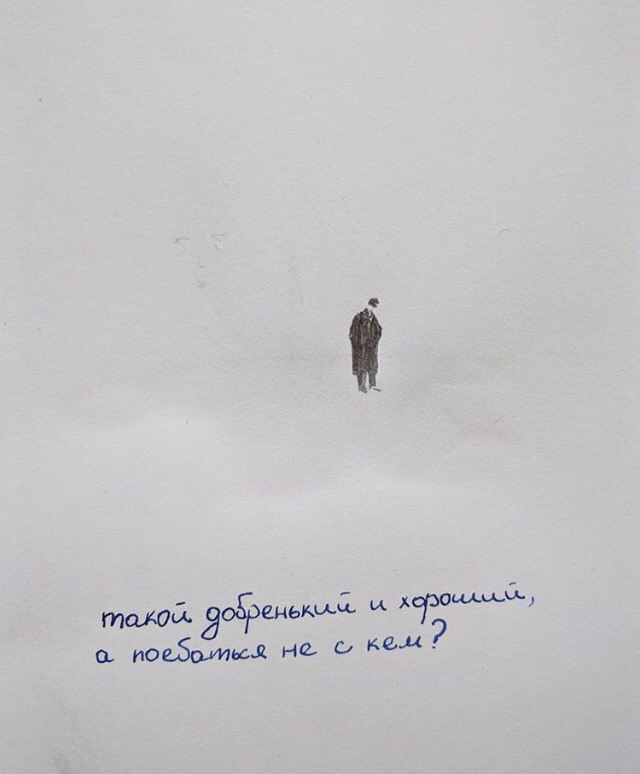 такой добренький и хороший,
а поебаться не с кем?